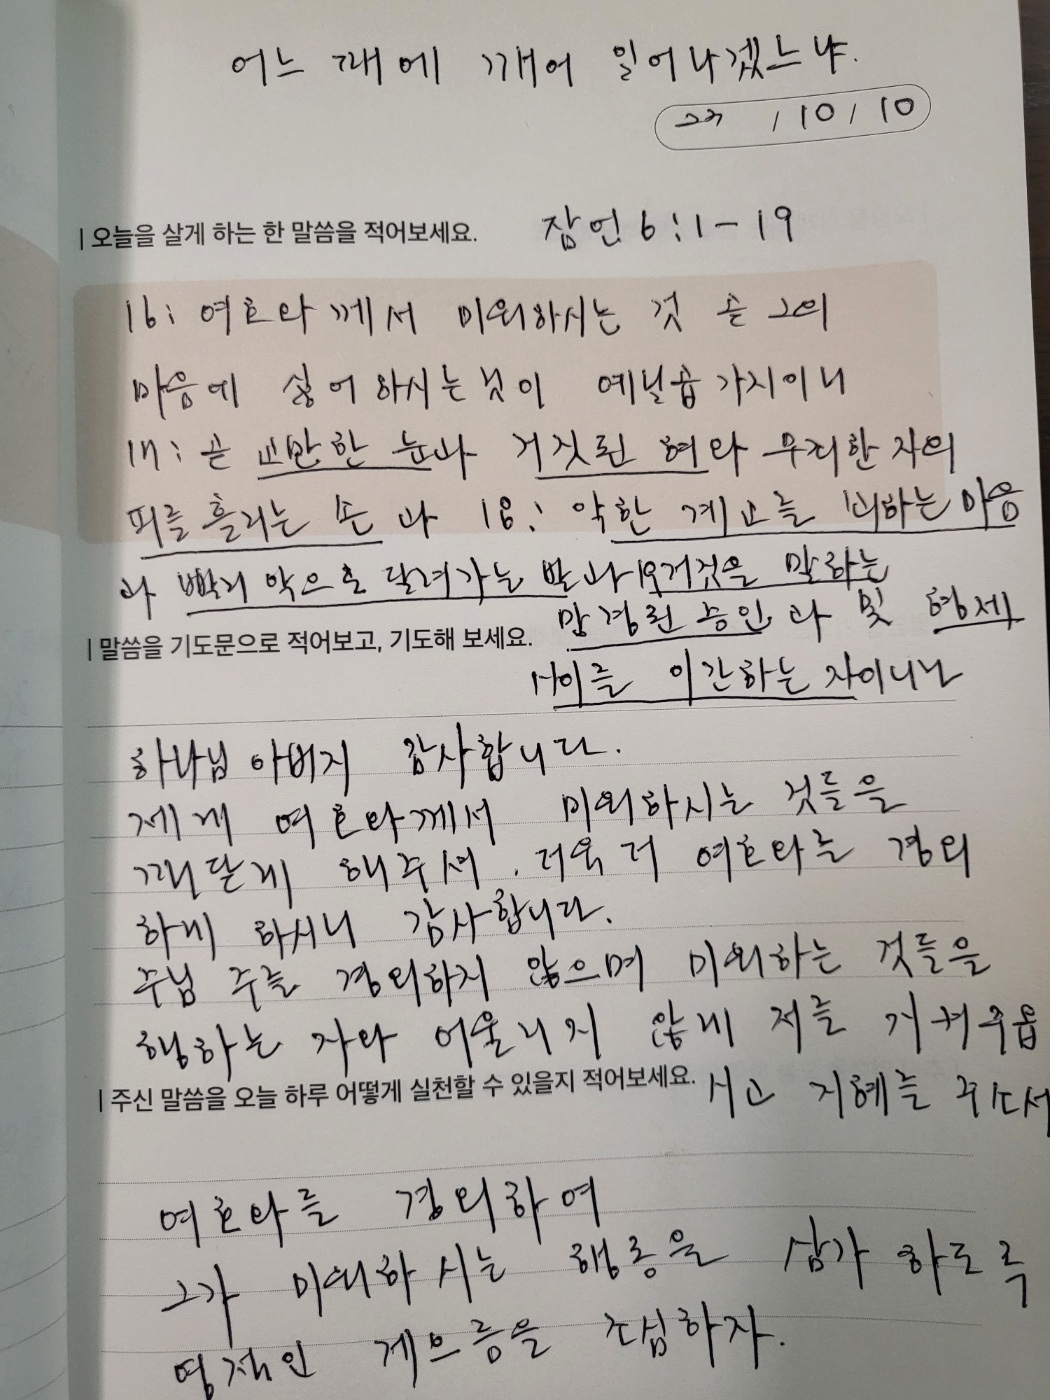 어느 때에 깨어 일어나겠느냐.
/ 10 / 10
| 오늘을 살게 하는 한 말씀을 적어보세요. 잠언 6:1-19
16: 여호와께서 미워하시는 것 곧 그의
마음에 싫어하시는것이 예닐곱 가지이니
17: 곧 교만한 눈과 거짓된 혀와 무죄한 자의
피를 흘리는 손과 18: 악한 계교를 꾀하는 마음
과 빨리 악으로 달려가는 발과 19 거짓을 말하는
망령된 증인과 및 형제
| 말씀을 기도문으로 적어보고, 기도해 보세요.
사이를 이간하는 자이니라
하나님 아버지 감사합니다.
제게 여호와께서 미워하시는 것들을
깨닫게 해주셔. 더욱 더 여호와를 경외
하게 하시니 감사합니다.
주님 주를 경외하지 않으며 미워하는 것들을
행하는 자와 어울리지 않게 저를 지켜주옵
| 주신 말씀을 오늘 하루 어떻게 실천할 수 있을지 적어보세요. 시고 지혜를 주소서
여호와를 경외하여
그가 미워하시는 행동을 삼가 하도록
영적인 게으름을 조심하자.